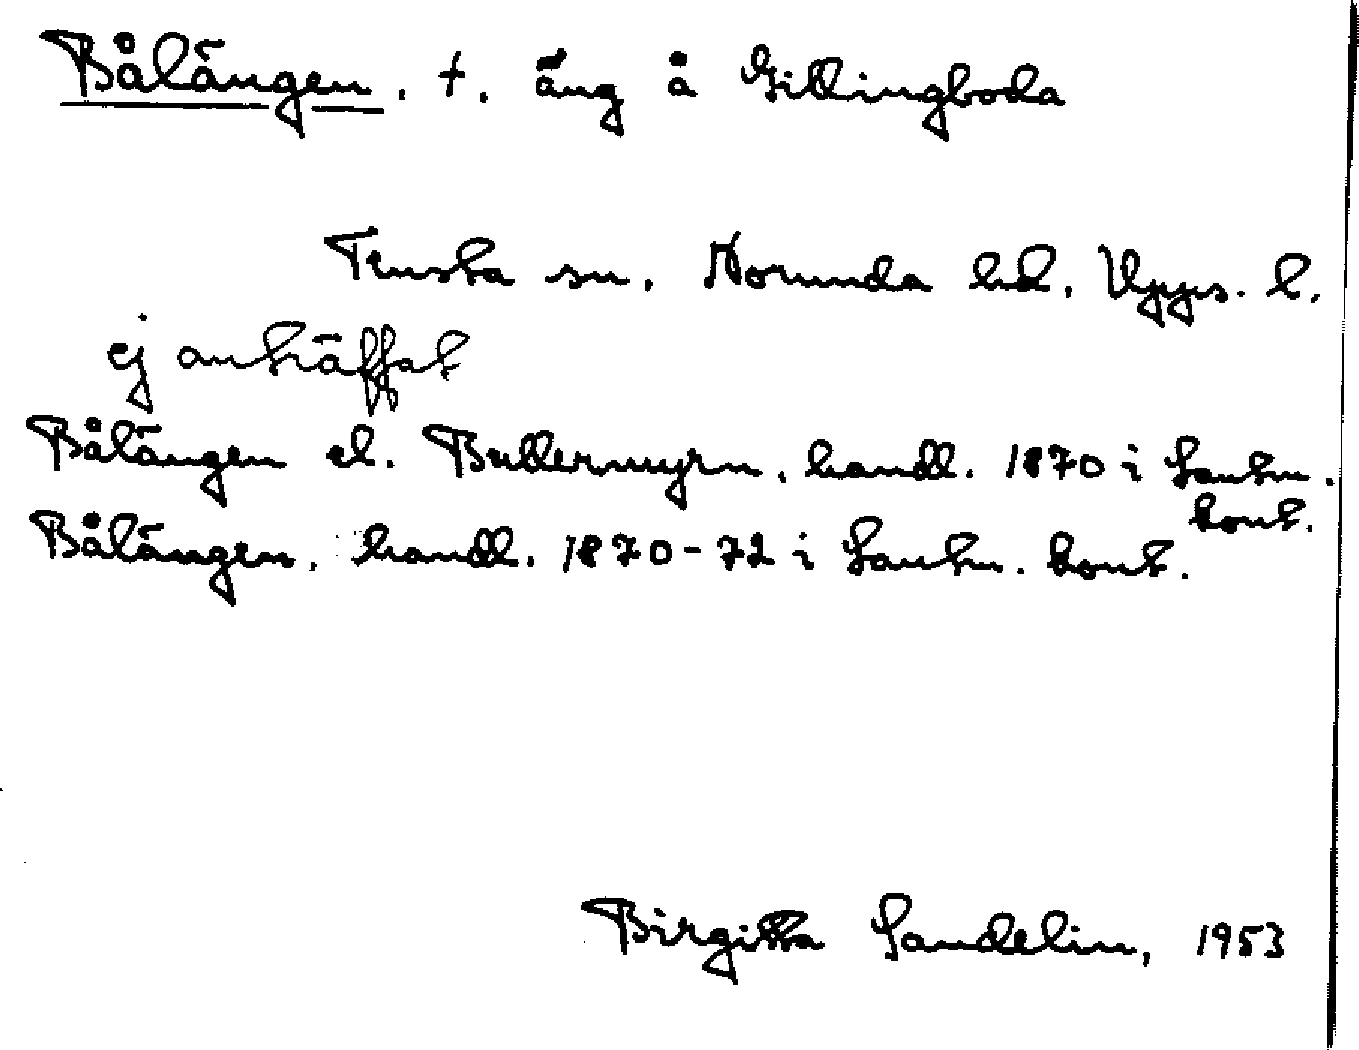 Bålängen, f. äng å Gillingboda
Tensta sn. Norunda hd. Upps. l.
ej anträffat
Bålängen el. Bullermyrn, handl. 1870 i Lantm.
kont.
Bålängen, handl. 1870-72 i Lantm. kont.
Birgitta Sandelin, 1953